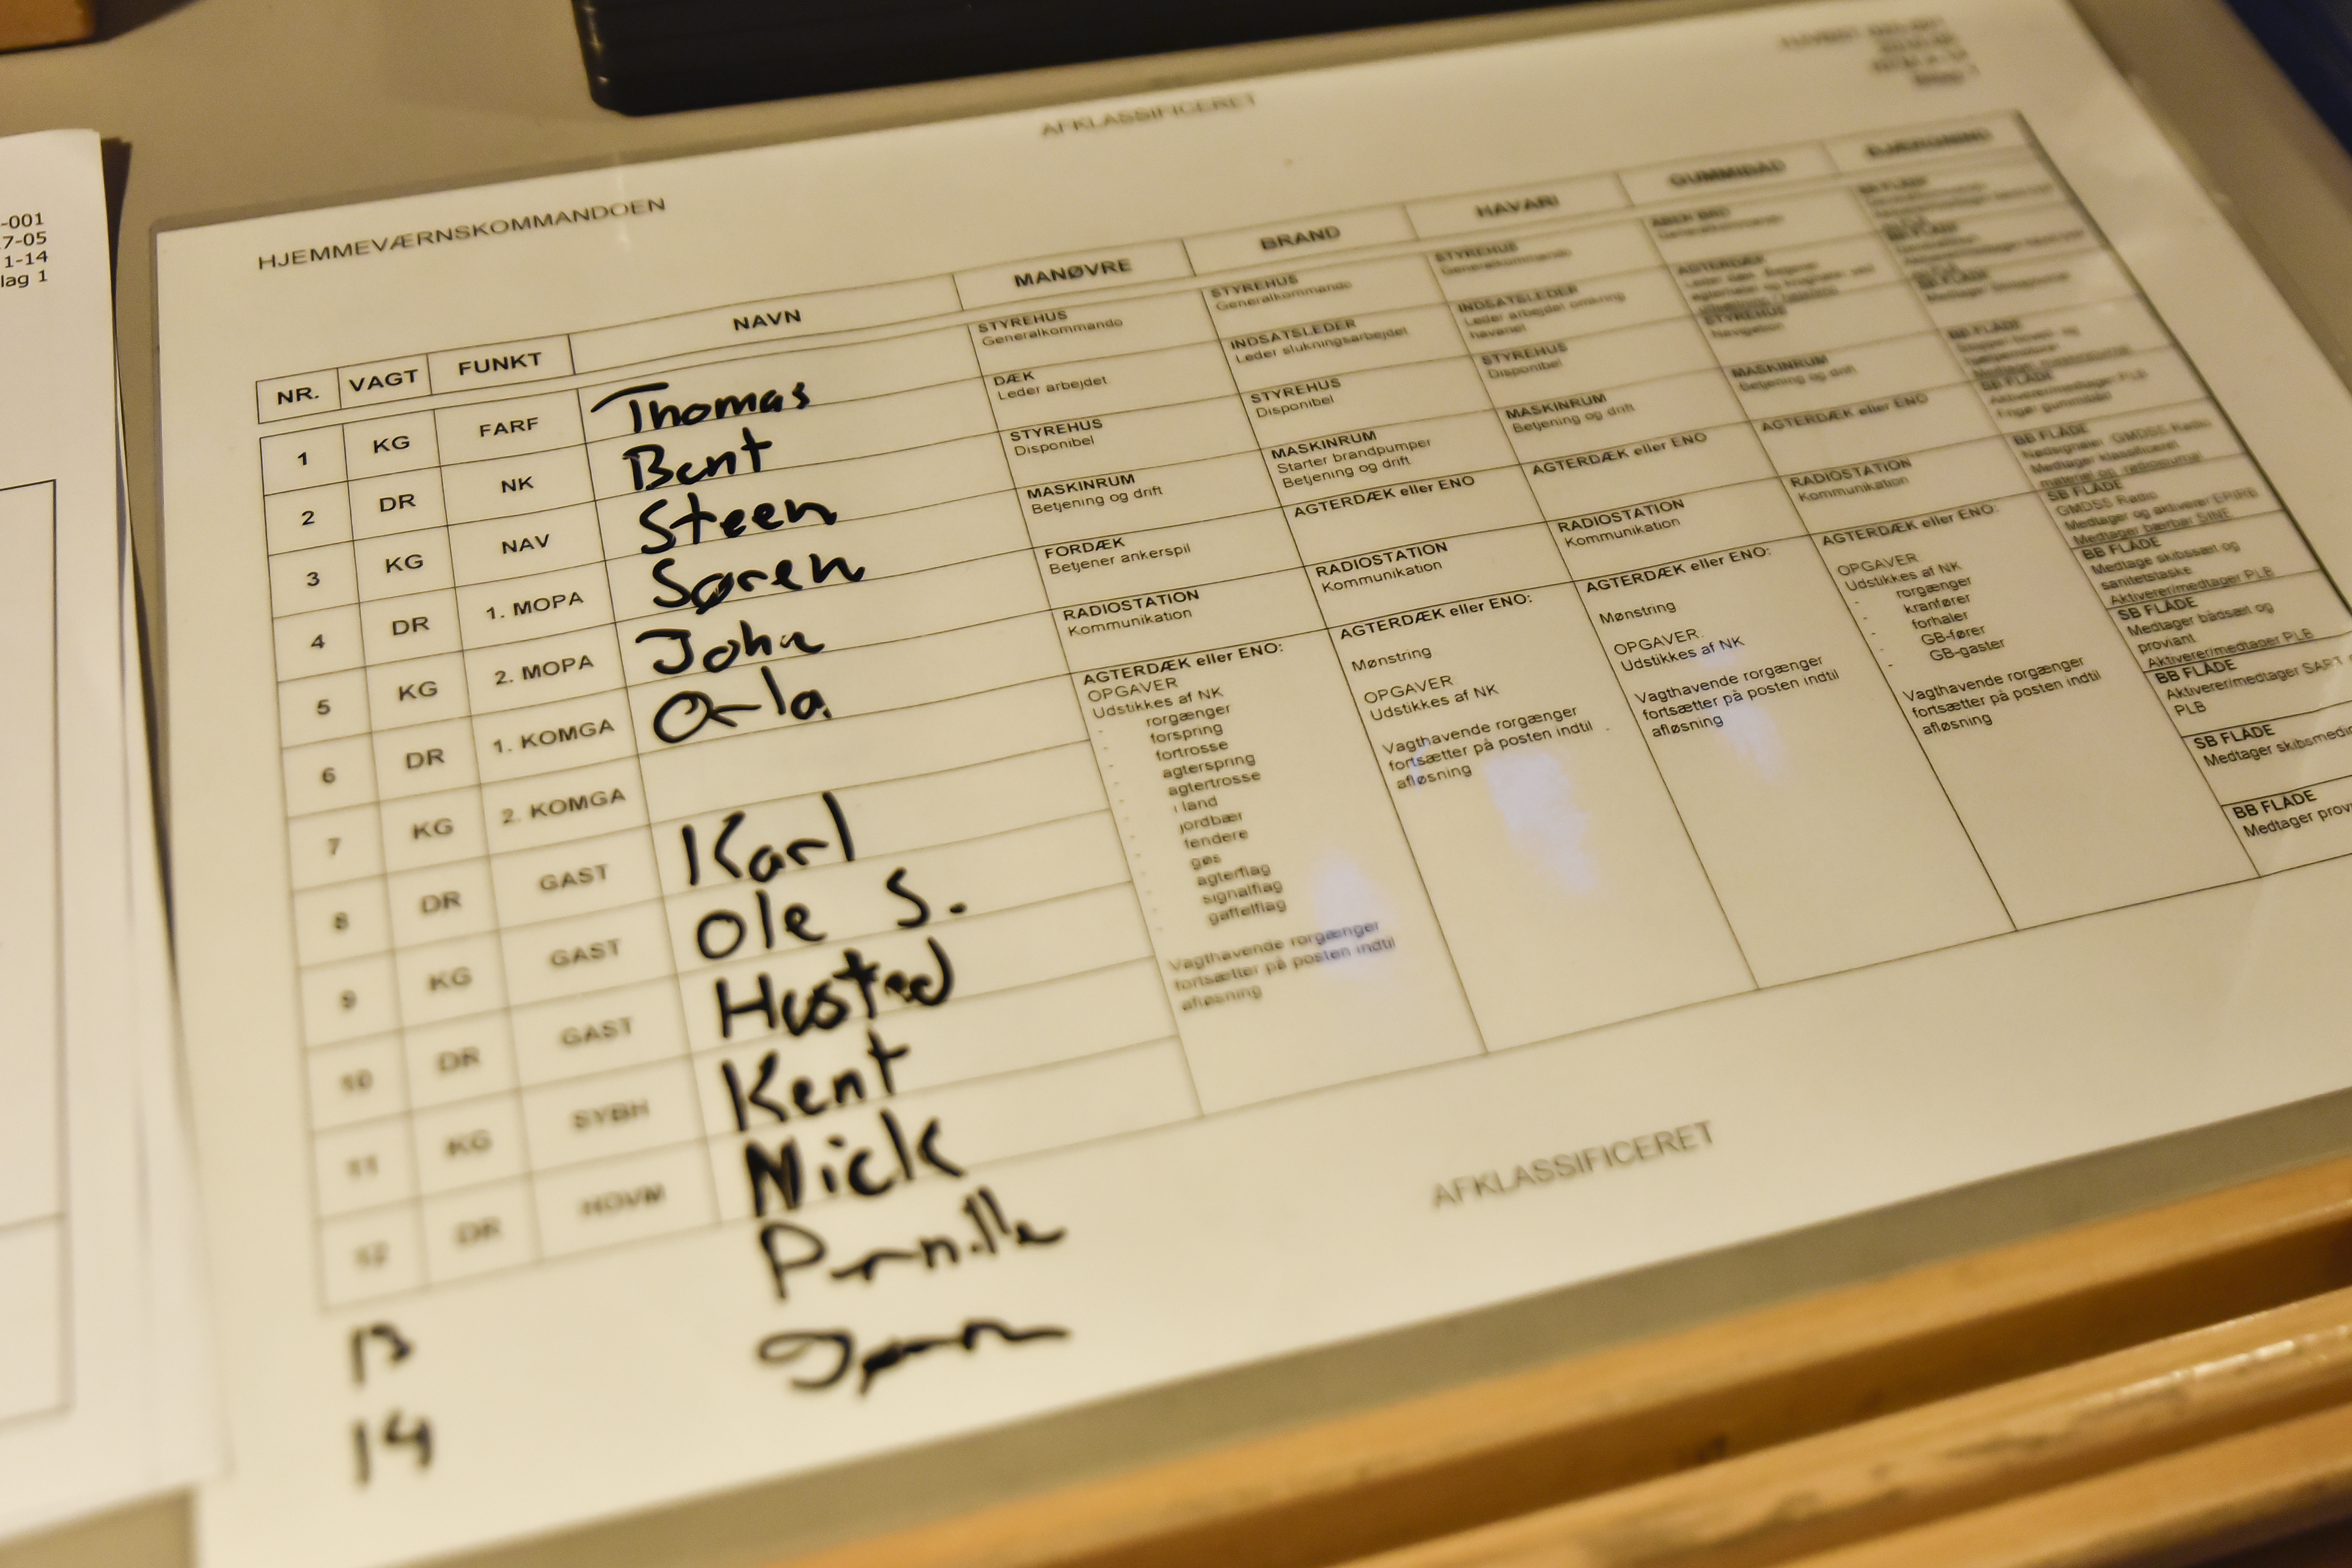 -001
7-05
1-14
lag 1
AFKLASSIFICERET
HJEMMEVÆRNSKOMMANDOEN
NR. VAGT FUNKT NAVN MANØVRE BRAND HAVARI GUMMIBÅD BJÆRGNING
1 KG FARF Thomas
2 DR NK Bent
3 KG NAV Steen
4 DR 1. MOPA Søren
5 KG 2. MOPA John
6 DR 1. KOMGA Orla
7 KG 2. KOMGA
8 DR GAST Karl
9 KG GAST Ole S.
10 DR GAST Husted
11 KG SYBH Kent
12 DR HOVM Nick
13 Pernille
14
STYREHUS
Generalkommando
DÆK
Leder arbejdet
STYREHUS
Disponibel
MASKINRUM
Betjening og drift
FORDÆK
Betjener ankerspil
RADIOSTATION
Kommunikation
AGTERDÆK eller ENO:
OPGAVER
Udstikkes af NK
- rorgænger
- forspring
- fortrosse
- agterspring
- agtertrosse
- i land
- jordbær
- fendere
- gøs
- agterflag
- signalflag
- gaffelflag
Vagthavende rorgænger
fortsætter på posten indtil
afløsning
STYREHUS
Generalkommando
INDSATSLEDER
Leder slukningsarbejdet
STYREHUS
Disponibel
MASKINRUM
Starter brandpumper
Betjening og drift
AGTERDÆK eller ENO
RADIOSTATION
Kommunikation
AGTERDÆK eller ENO:
Mønstring
OPGAVER
Udstikkes af NK
Vagthavende rorgænger
fortsætter på posten indtil
afløsning
STYREHUS
Generalkommando
INDSATSLEDER
Leder arbejdet omkring
havariet
STYREHUS
Disponibel
MASKINRUM
Betjening og drift
AGTERDÆK eller ENO
RADIOSTATION
Kommunikation
AGTERDÆK eller ENO:
Mønstring
OPGAVER.
Udstikkes af NK
Vagthavende rorgænger
fortsætter på posten indtil
afløsning
Generalkommando
AGTERDÆK
STYREHUS
Navigation
MASKINRUM
Betjening og drift
AGTERDÆK eller ENO
RADIOSTATION
Kommunikation
AGTERDÆK eller ENO:
OPGAVER
Udstikkes af NK
- rorgænger
- kranfører
- forhaler
- GB-fører
- GB-gaster
Vagthavende rorgænger
fortsætter på posten indtil
afløsning
BB FLÅDE
BB FLÅDE
BB FLÅDE
BB FLÅDE
BB FLÅDE
Aktiverer/medtager PLB
Frigør gummibåd
BB FLÅDE
Nødsignaler, GMDSS Radio
Medtager klassificeret
materiel og radiojournal
SB FLÅDE
GMDSS Radio
Medtager og aktiverer EPIRB
Medtager bærbar SINE
BB FLÅDE
Medtage skibssæt og
sanitetstaske
Aktiverer/medtager PLB
SB FLÅDE
Medtager bådsæt og
proviant
Aktiverer/medtager PLB
BB FLÅDE
Aktiverer/medtager SART
PLB
SB FLÅDE
Medtager skibsmedi
BB FLÅDE
Medtager prov
AFKLASSIFICERET